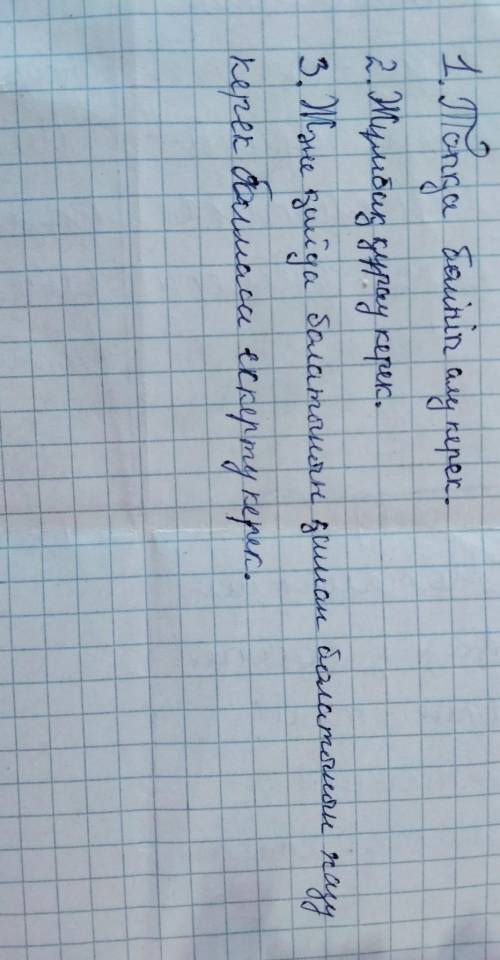 1. Топқа бөлініп алу керек.
2. Жұмбақ құрау керек.
3. Және қайда болатынын қашан болатынын жазу
керек болмаса ескерту керек.